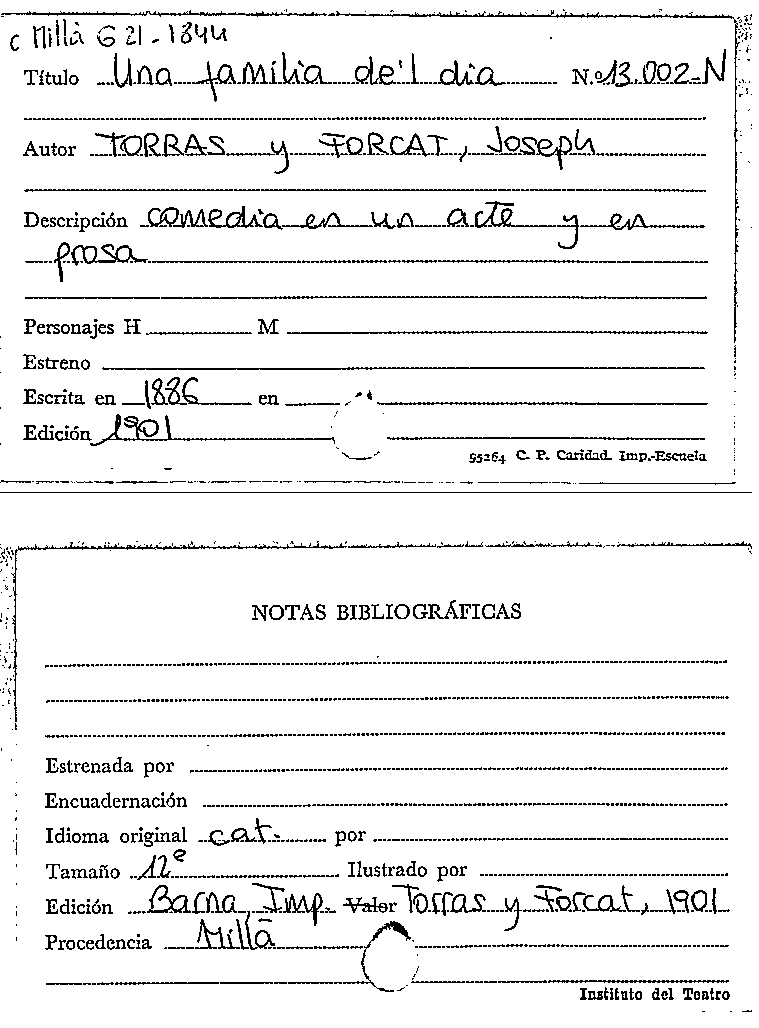 C Millà G 21-1844
Título Una família de'l dia N.º 13.002-N
Autor TORRAS y FORCAT, Joseph
Descripción comedia en un acte y en
prosa
Personajes H M
Estreno
Escrita en 1886 en
Edición 1901
95264 C. P. Caridad. Imp.-Escuela
NOTAS BIBLIOGRÁFICAS
Estrenada por
Encuadernación
Idioma original cat. por
Tamaño 12º Ilustrado por
Edición Barna, Imp. Valor Torras y Forcat, 1901
Procedencia Millà
Instituto del Teatro